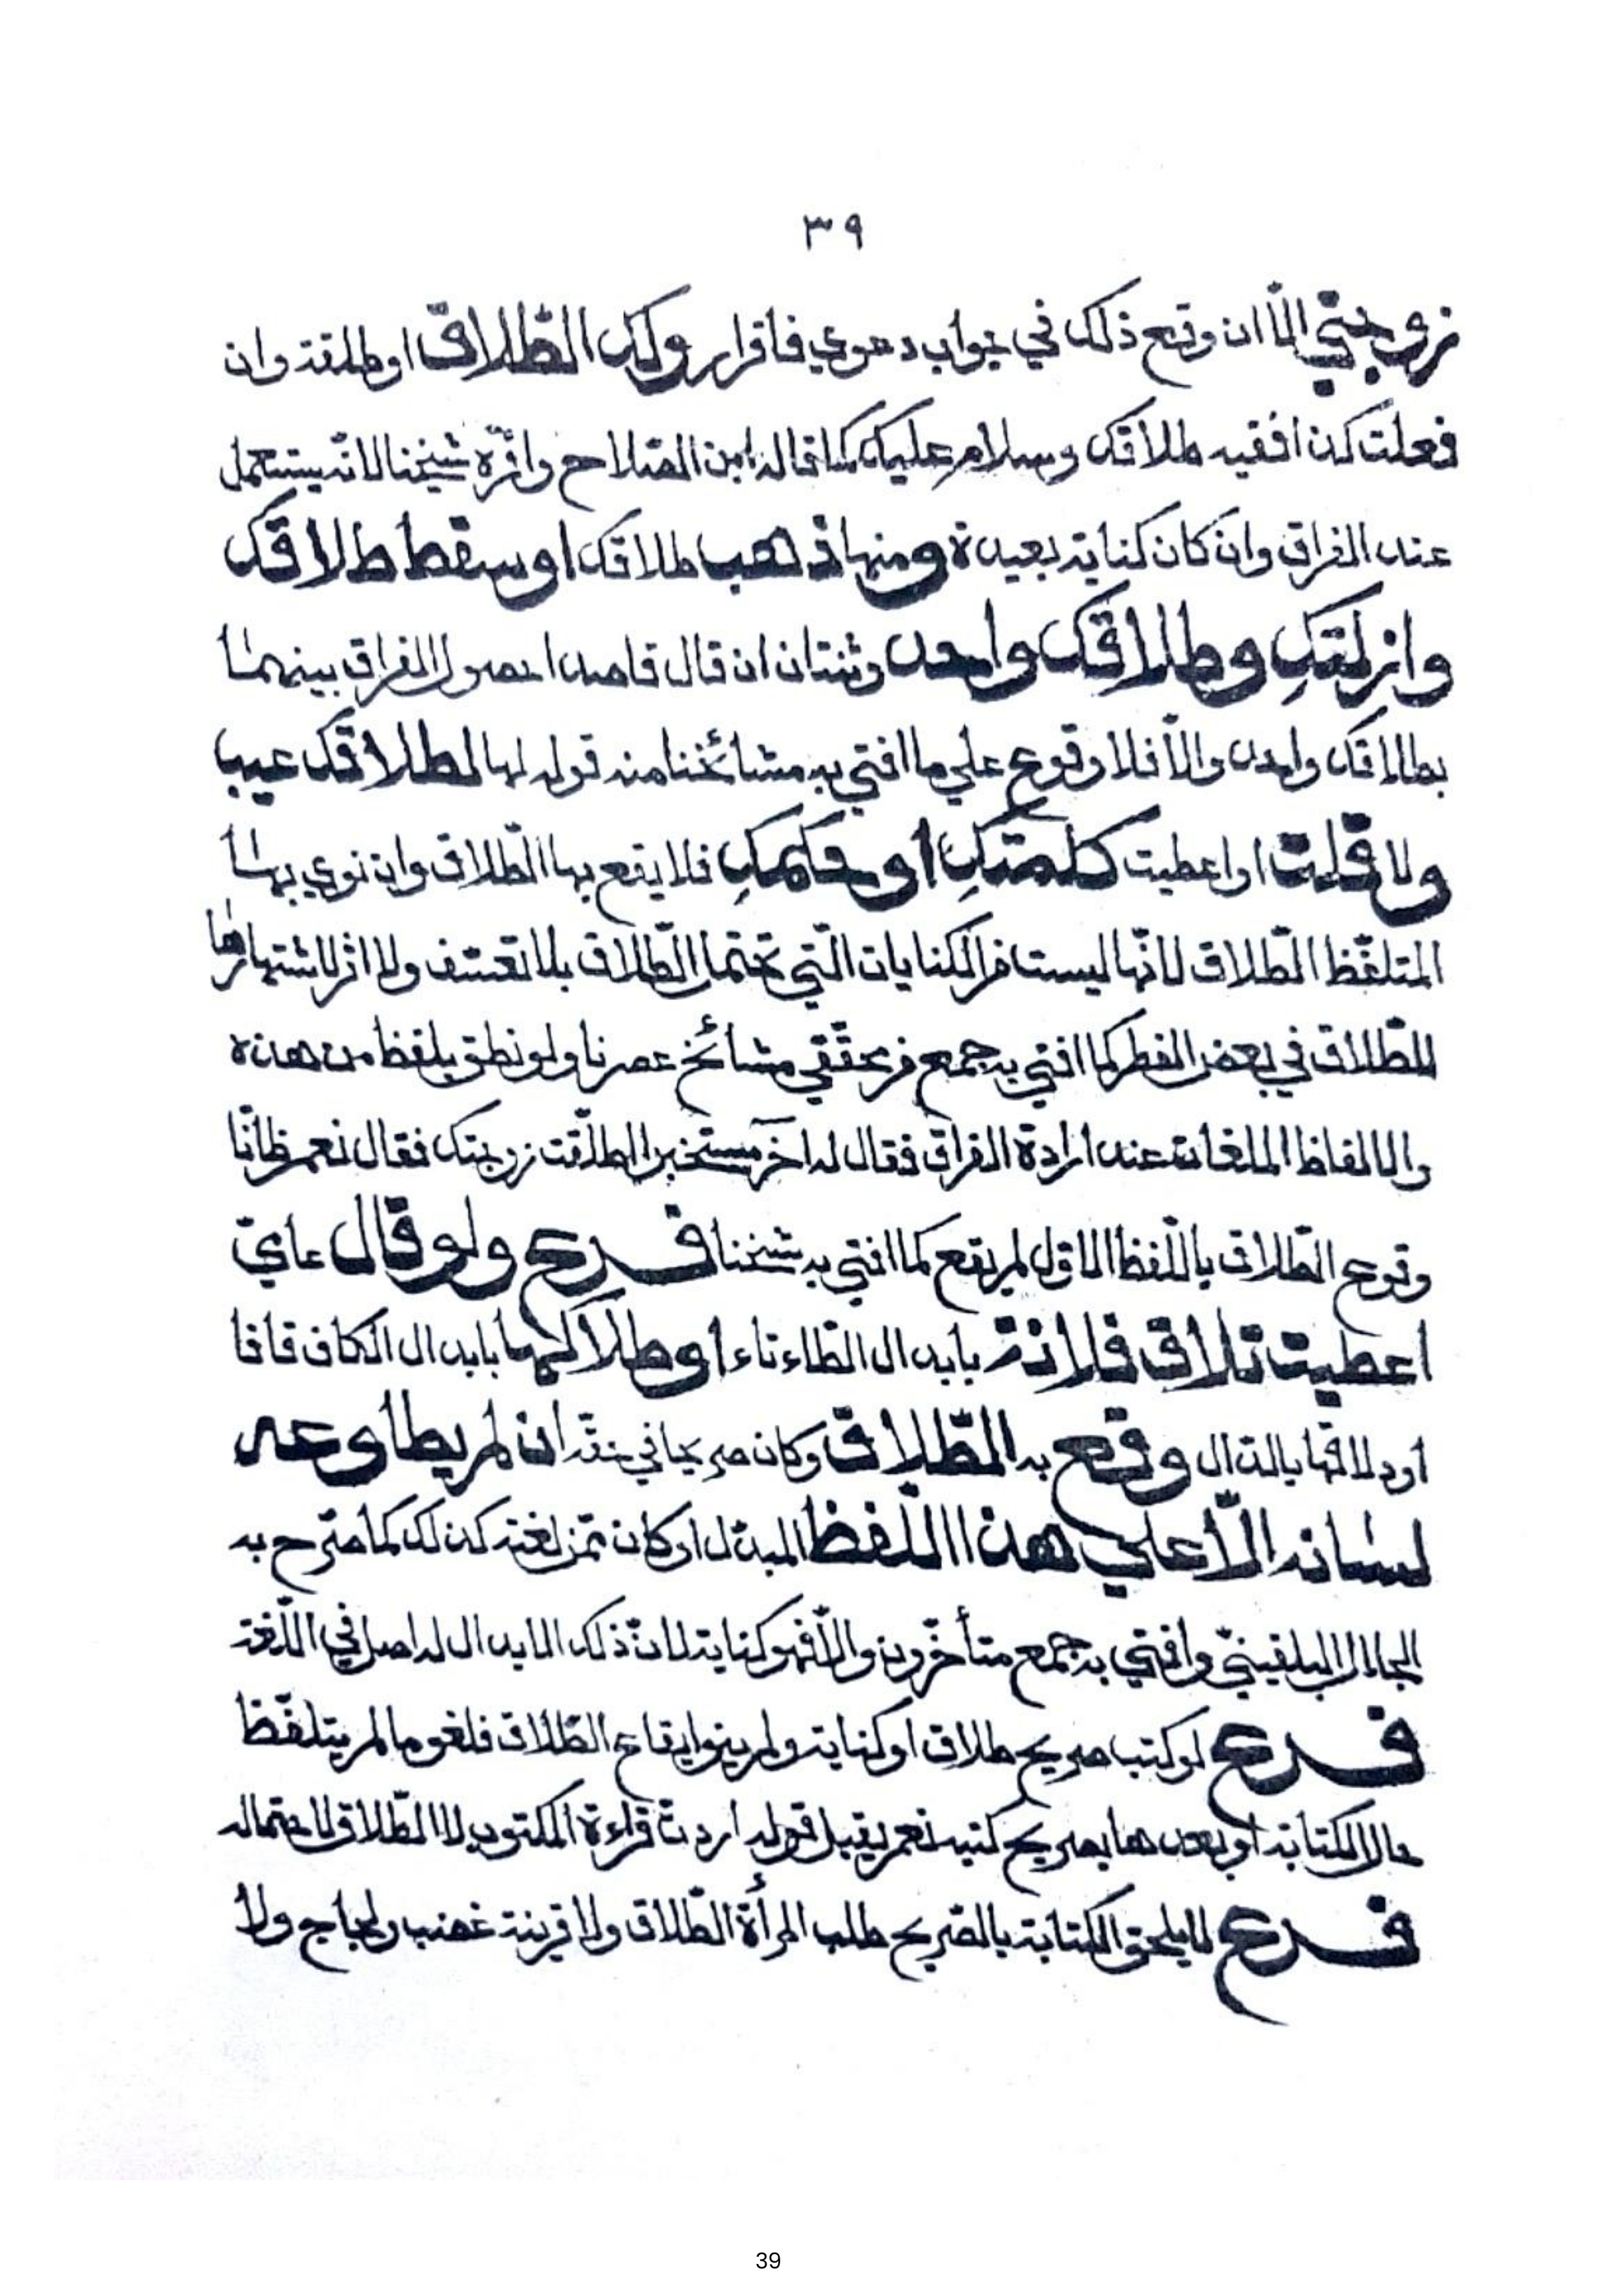 ٣٩
زوجتي إلّا ان وقع ذلك في جواب دعوي فاقرار ولك الطّلاق او طلقة وان
فعلت كذا ففيه طلاقك وسلام عليك كما قاله ابن الصّلاح واقرّه شيخنا لانّه يستعمل
عند الفراق وان كان كناية بعيدة ومنها ذهب طلاقك او سقط طلاقك
وانزلتكِ وطلاقك واحد وثنتان ان قال قاصدا حصول الفراق بينهما
بطلاقك واحد والّا فلا وقوع علي ما افتي به مشائخنا منه قوله لها لطلاقك عيب
ولا قلت او اعطيت كلمتكِ او حكمكِ فلا يقع بها الطّلاق وان نوي بها
المتلفّظ الطّلاق لانّها ليست من الكنايات الّتي تحتمل الطّلاق بلا تعسّف ولا اثر لاشتهارها
للطّلاق في بعض القطر كما افتي به جمع من محقّقي مشائخ عصرنا ولو نطق بلفظ من هذه
الالفاظ الملغاة عند ارادة الفراق فقال له آخر مستخبرا اطلّقت زوجتك فقال نعم ظانّا
وقوع الطّلاق باللّفظ الاوّل لم يقع كما افتي به شيخنا فرع ولو قال عاميّ
اعطيت تلاق فلانة بابدال الطّاء تاء او طلاكها بابدال الكاف قافا
او دلاقها بالدّال وقع به الطّلاق وكان صريحا في حقّه ان لم يطاوعه
لسانه الّا علي هذا اللّفظ المبدّل او كان ممّن لغته كذلك كما صرّح به
الجلال البلقينيّ وافتي به جمع متأخّرون والّا فهو كناية لانّ ذلك الابدال له اصل في اللّغة
فرع لو كتب صريح طلاق او كناية ولم ينو ايقاع الطّلاق فلغو ما لم يتلفّظ
حال الكتابة او بعدها بصريح كتبه نعم يقبل قوله اردت قراءة المكتوب لا الطّلاق لاحتماله
فرع لا يلحق الكتابة بالصّريح طلب المرأة الطّلاق ولا قرينة غضب ولجاج ولا
39